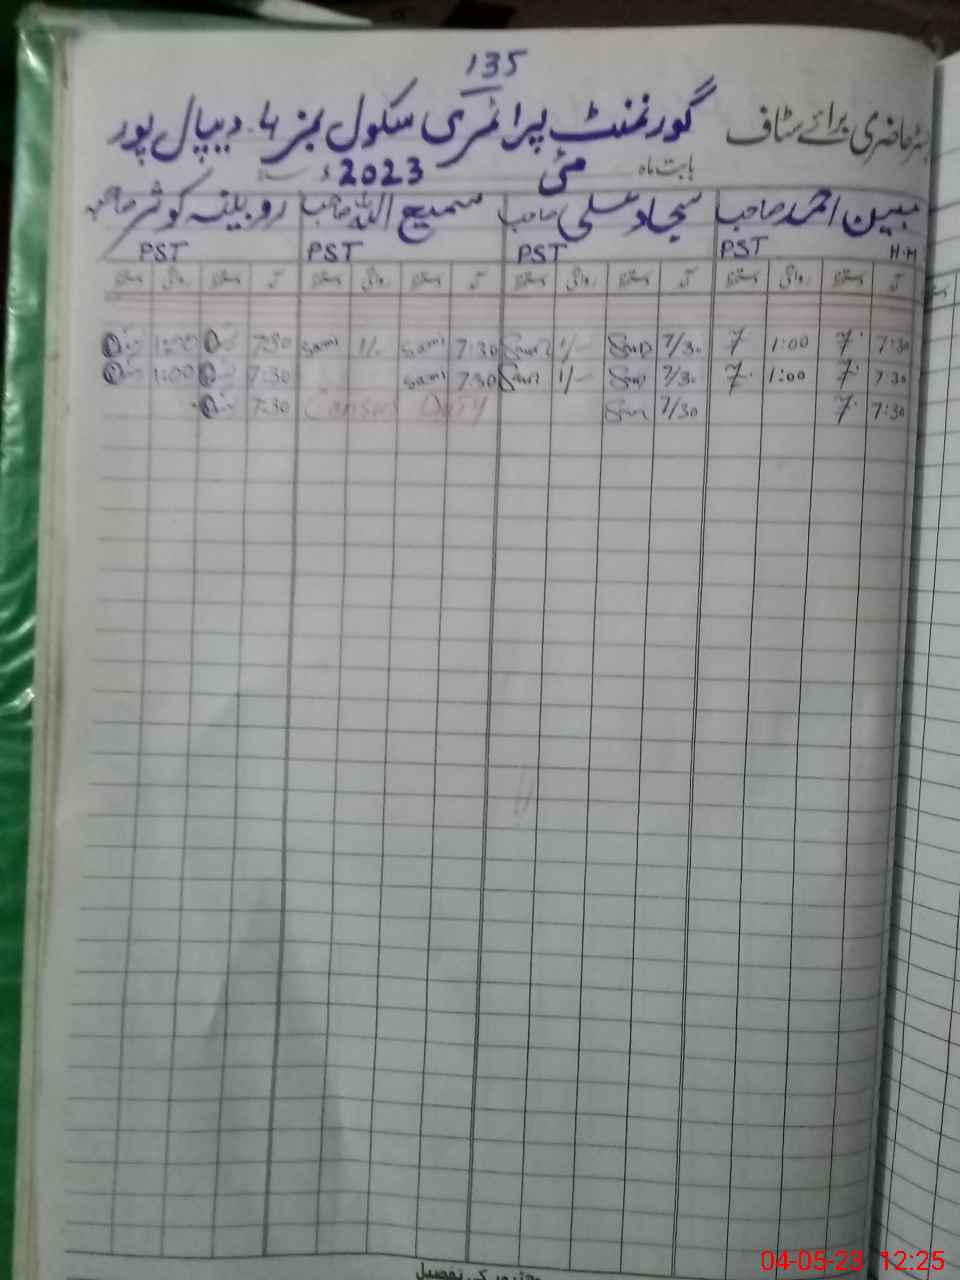 135
حاضری برائے سٹاف گورنمنٹ پرائمری سکول نمبر 4 دیپال پور
بابت ماہ مئی 2023ء
مبین احمد صاحب سجاد علی صاحب سمیع اللہ صاحب روبینہ کوثر صاحبہ
PST H.M PST PST PST
آمد دستخط روانگی دستخط آمد دستخط روانگی دستخط آمد دستخط روانگی دستخط آمد دستخط روانگی دستخط
7:30 7. 1:00 7 7/30 1/- 7:30 Sami 1/- Sami 7:30 1:00
7:30 7. 1:00 7. 7/30 1/- 7:30 Sami 7:30 1:00
7:30 7. 7/30 Census Duty 7:30
کی تفصیل
04-05-23 12:25